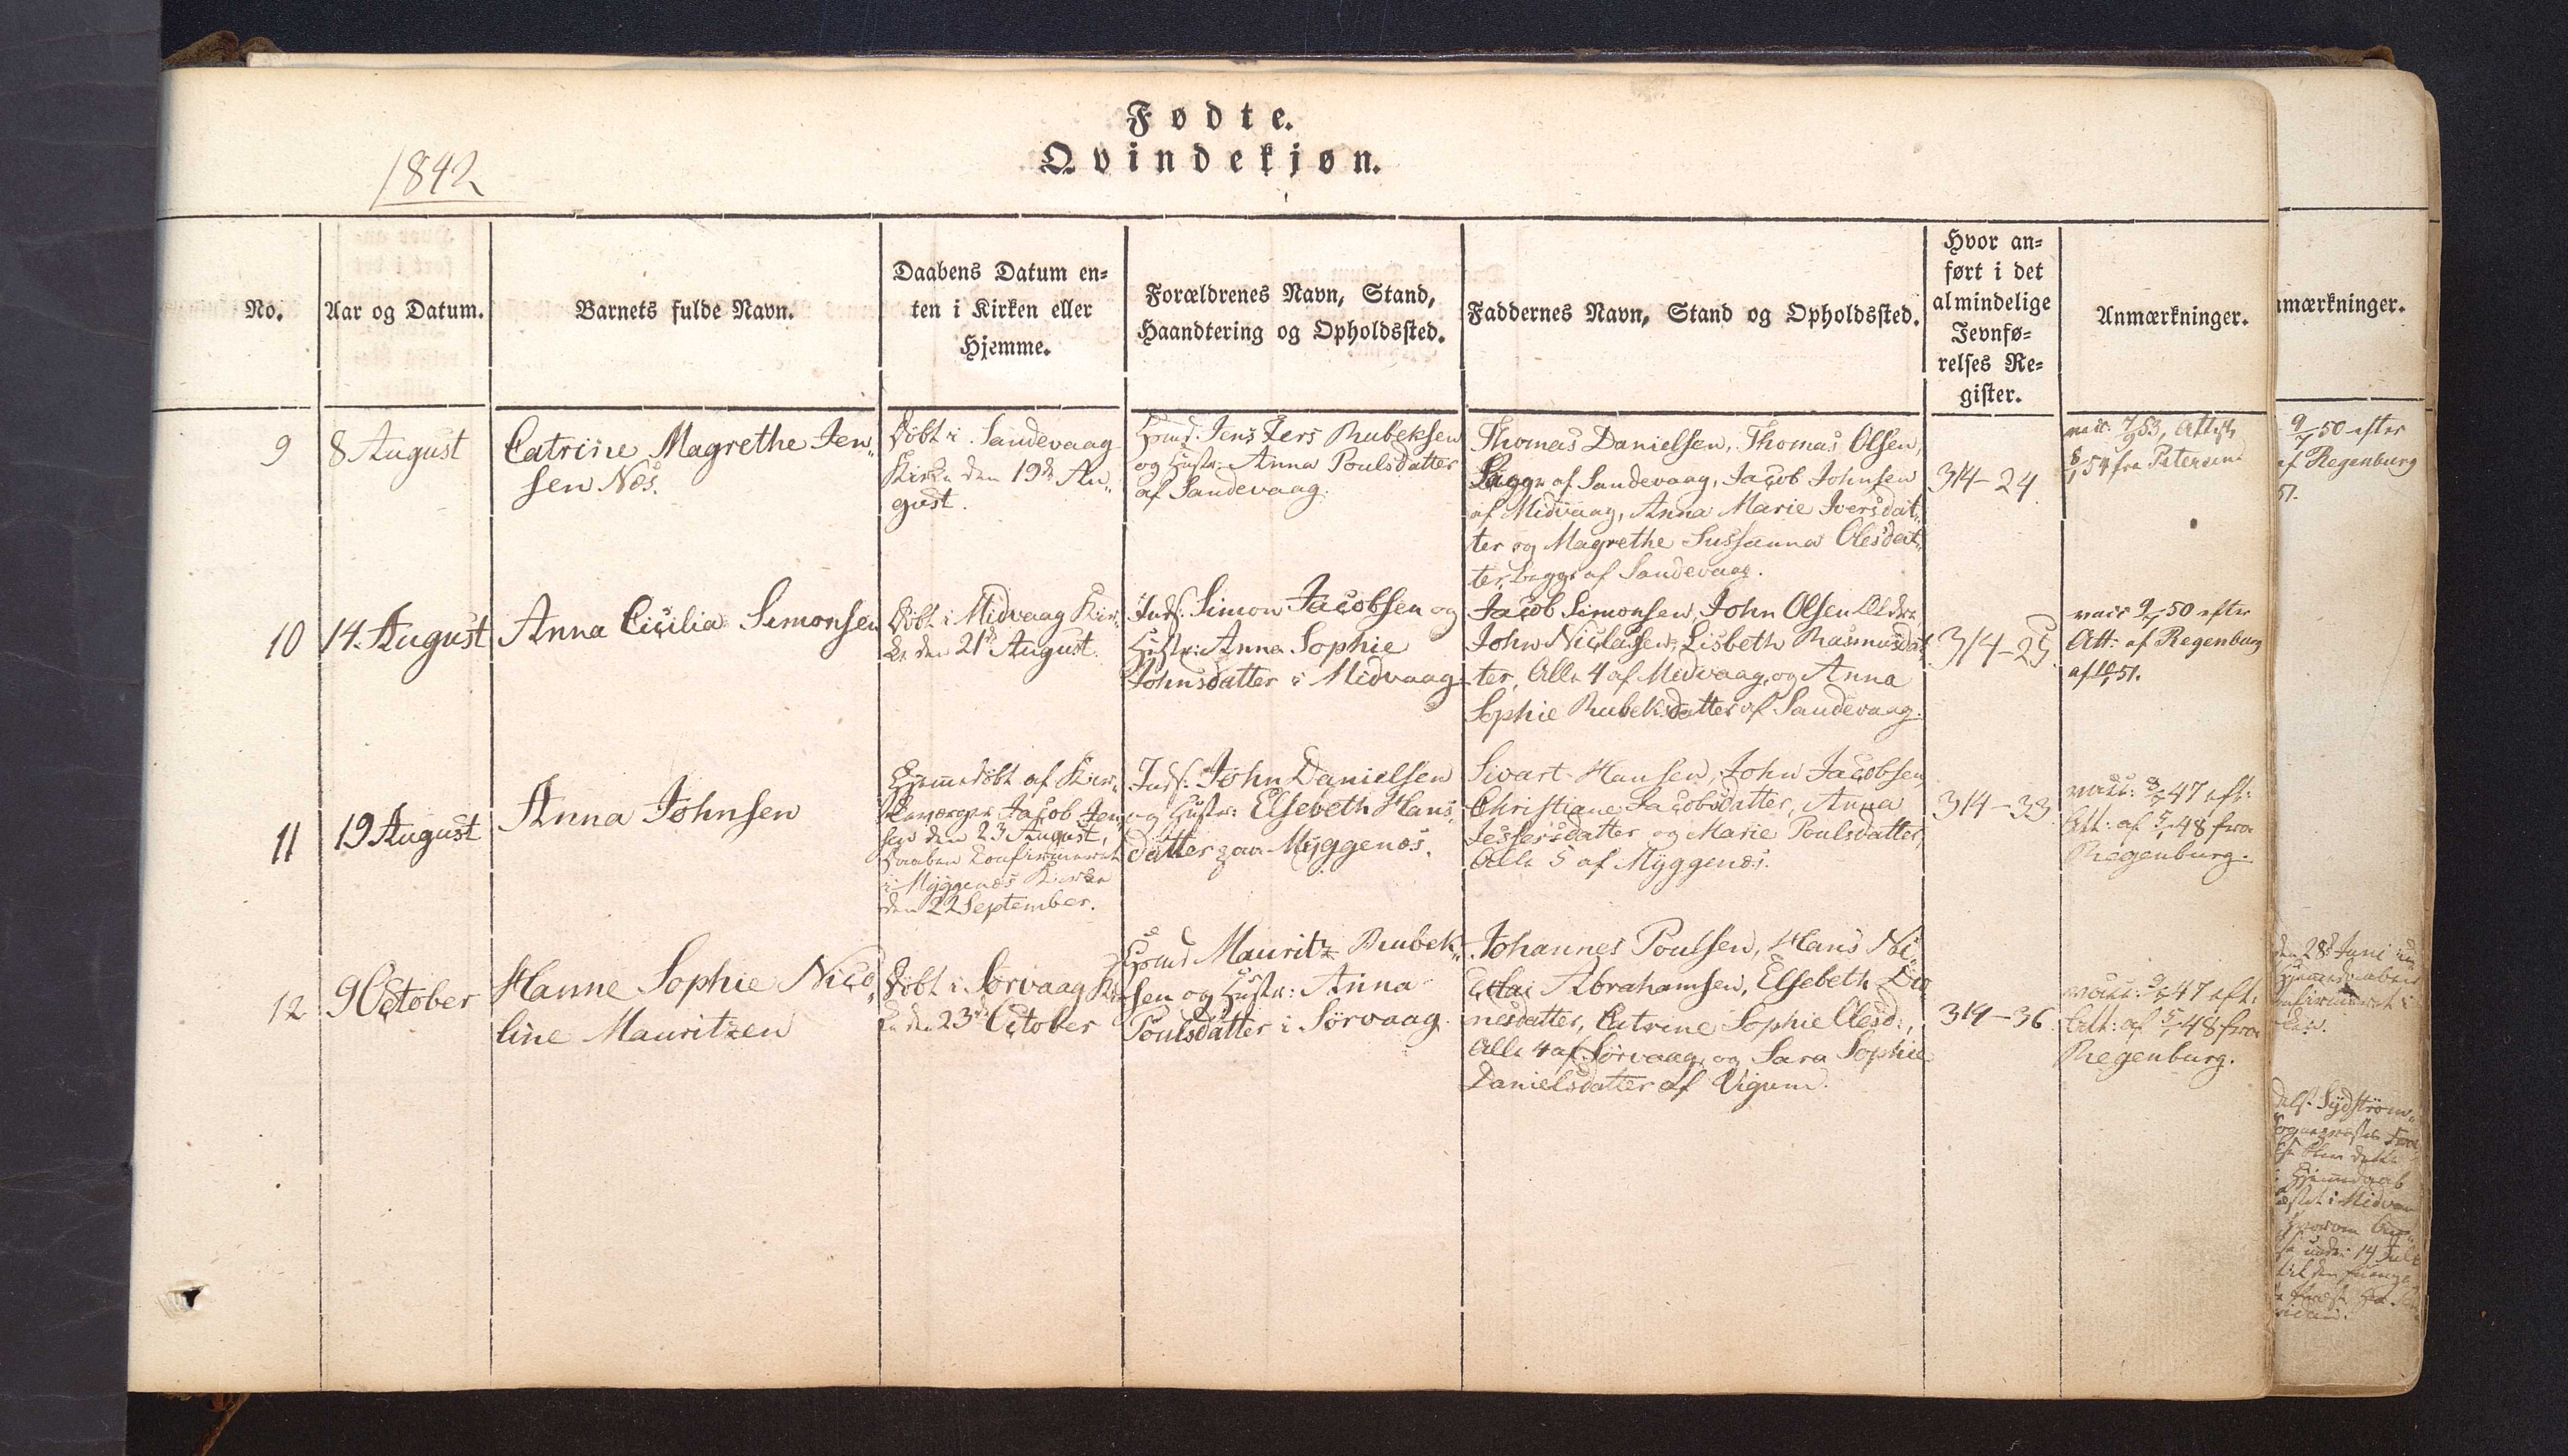 Fødte.
Qvindekjøn.
1842
No.
Aar og Datum.
Barnets fulde Navn.
Daabens Datum en=
ten i Kirken eller
Hjemme.
Forældrenes Navn, Stand,
Haandtering og Opholdssted.
Faddernes Navn, Stand og Opholdssted.
Hvor an=
ført i det
almindelige
Jevnfø=
relses Re=
gister.
Anmærkninger.
9
8 August
Catrine Magrethe Jen„
sen Næs.
Døbt i Sandevaag
Kirke den 19de Au„
gust.
Jens Rubeksen
og Hustr: Anna Poulsdatter
af Sandevaag.
Thomas Danielsen, Thomas Olsen,
Begge af Sandevaag, Jacob Johnsen
af Midvaag, Anna Marie Iversdat„
ter og Magrethe Susanna Olesdat„
ter, begge af Sandevaag.
314-24
vacc: 7/9 53, Attest
fra Petersen
10
14. August
Anna Cicilia Simonsen
Døbt i Midvaag Kir„
ke den 21de August.
Inds: Simon Jacobsen og
Hustr: Anna Sophie
Johnsdatter i Midvaag
Jacob Simonsen, John Olsen Ældre
John Niclasen, Lisbeth Rasmusdat„
ter, Alle 4 af Midvaag, og Anna
Sophie Rubeksdatter af Sandevaag.
314-25
vacc 9/7 50 efter
Att: af Regenburg
af 51.
11
19 August
Anna Johnsen
Hjemmedøbt af Kir„
keværger Jacob Jen„
sen den 23 August,
Daaben Confirmeret
i Myggenæs Kirke
den 22 September.
Inds: John Danielsen
og Hustr: Elsebeth Hans„
datter paa Myggenæs.
Sivart Hansen, John Jacobsen,
Christiane Jacobsdatter, Anna
Jespersdatter og Marie Poulsdatter,
Alle 5 af Myggenæs.
314-33
vacc: 47 eft:
Att: af 48 fra
Regenburg.
12
9 October
Hanne Sophie Nico„
line Mauritzen
Døbt i Sørvaag Kir
ke den 23de October
Mauritz Rubek„
sen og Hustr: Anna
Poulsdatter i Sørvaag.
Johannes Poulsen, Hans Ni„
colai Abrahamsen, Elsebeth Dio„
nesdatter, Catrine Sophie Olesd:,
Alle 4 af Sørvaag, og Sara Sophie
Danielsdatter af Vigum.
314-36
vacc: 47 eft:
Att: af 48 fra
Regenburg.
nmærkninger.
9/7 50 efter
af Regenburg
51.
den 28de Juni